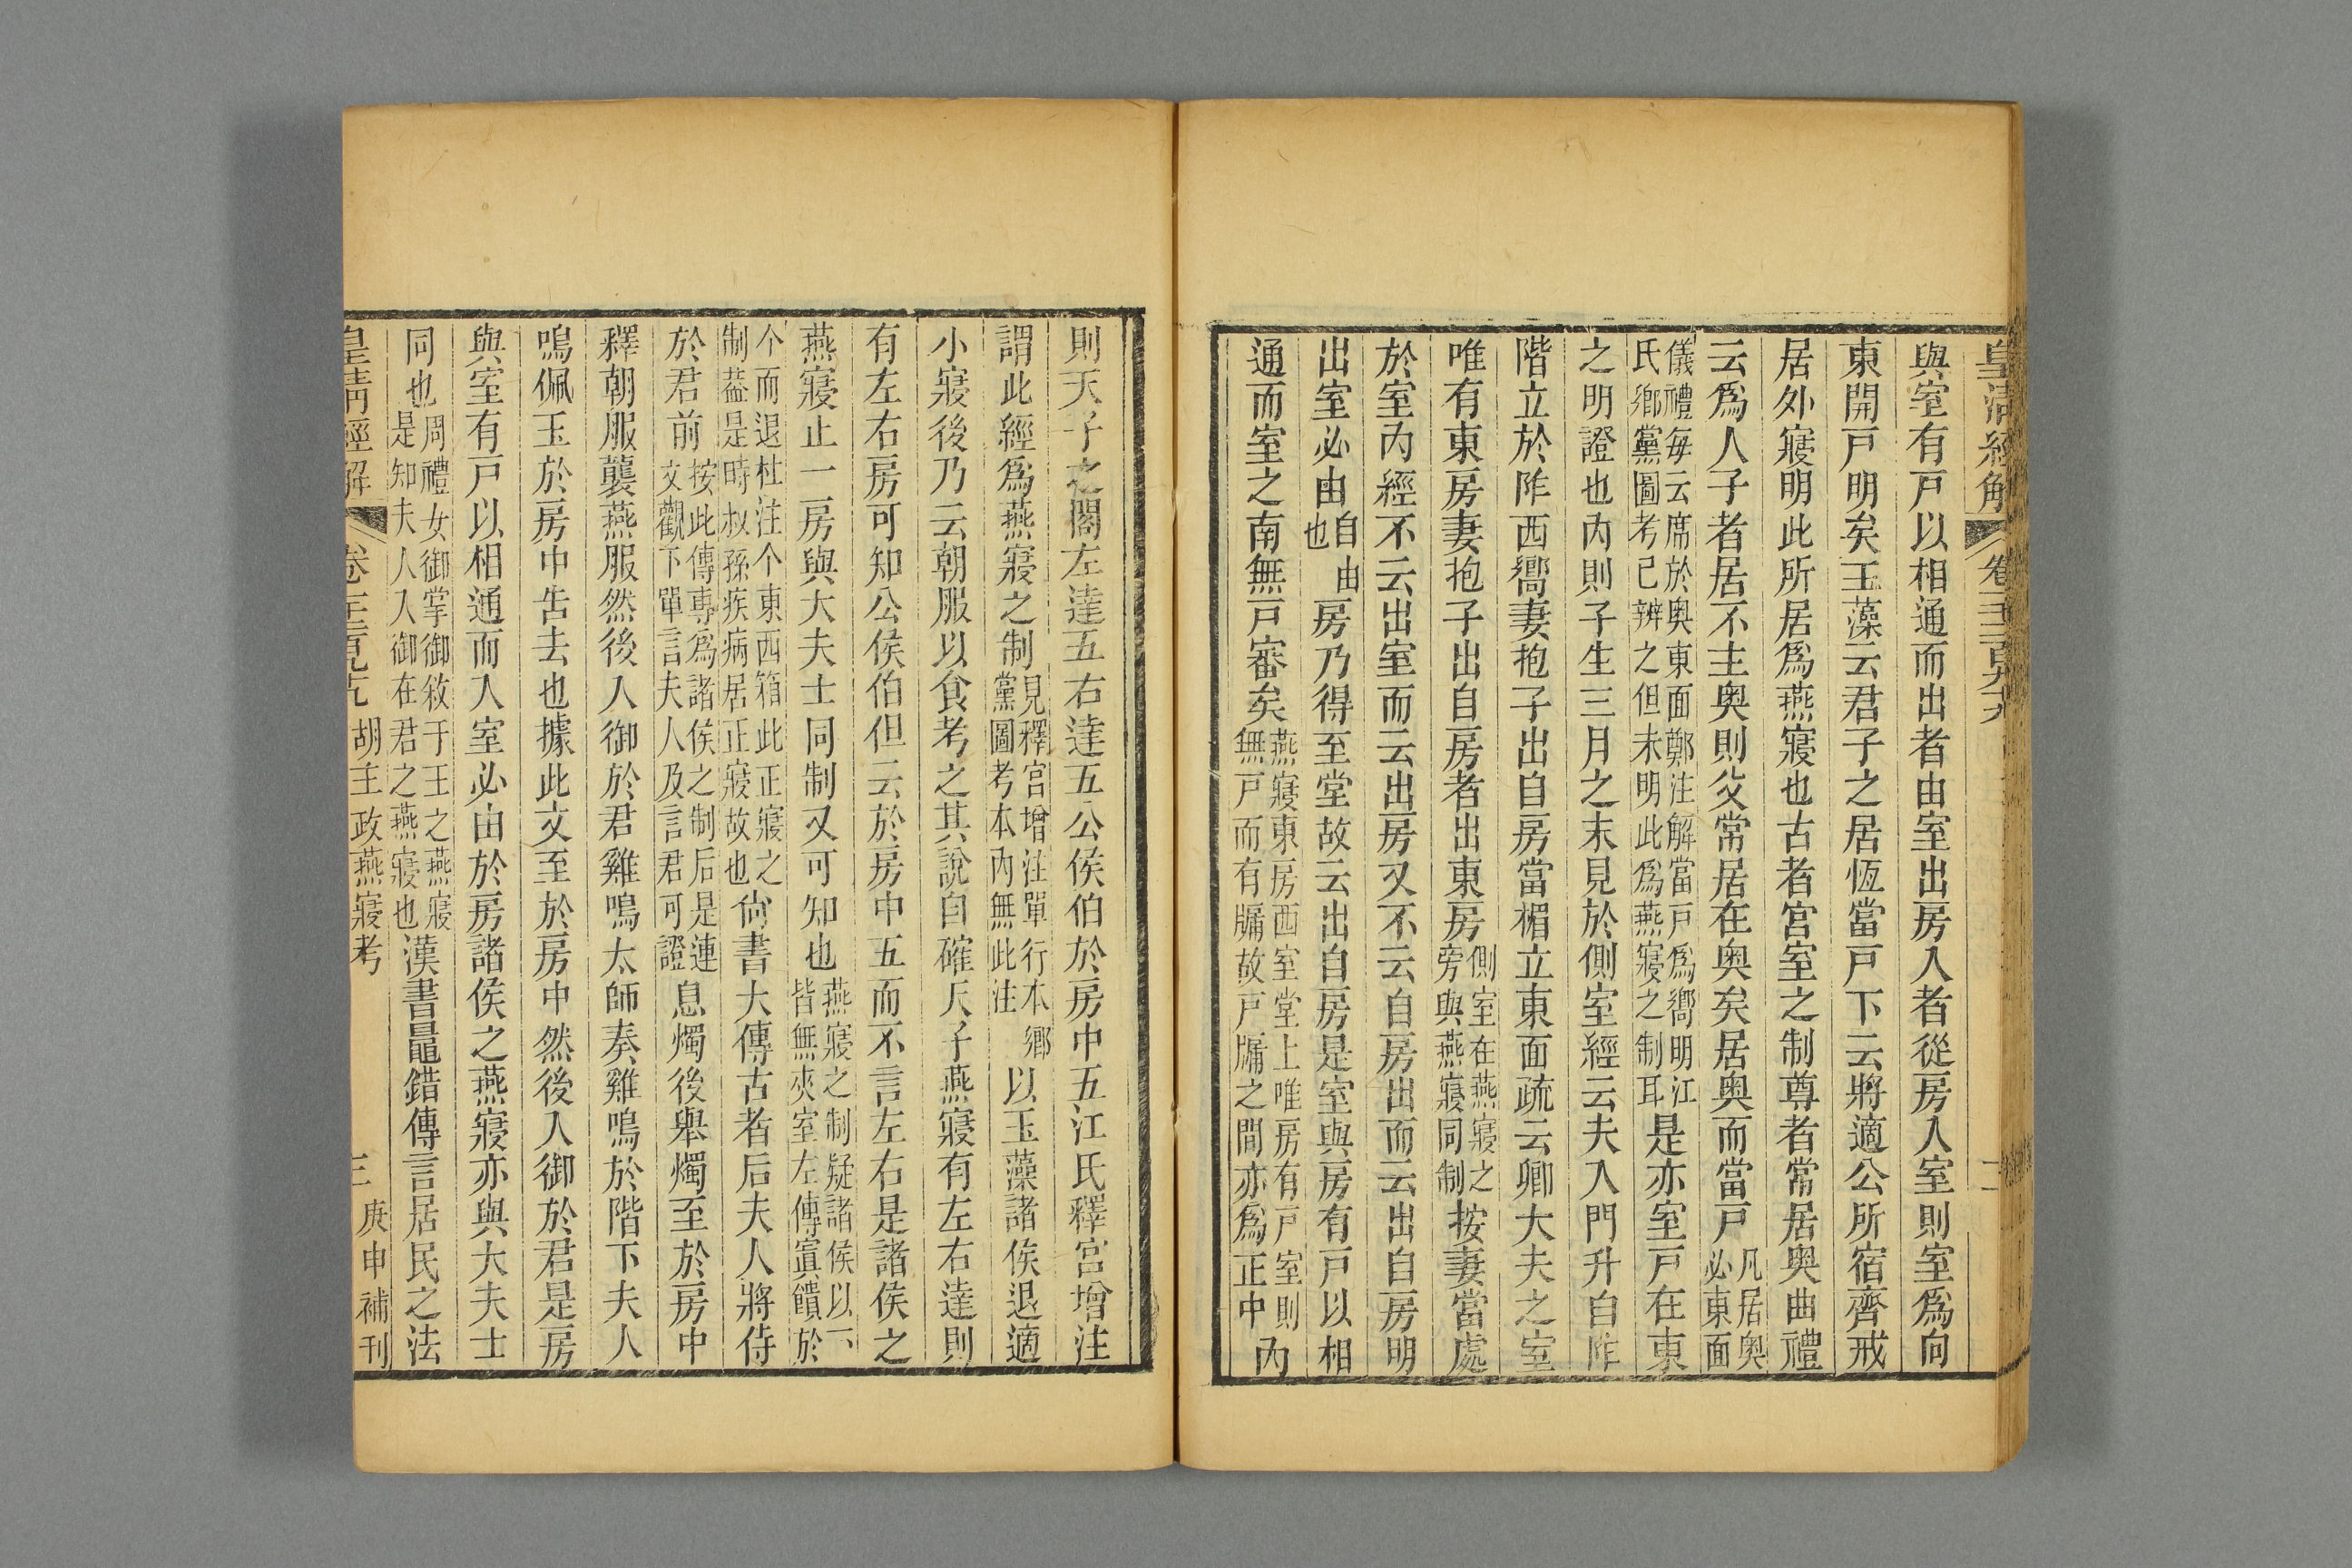 皇清經解 卷千三百九十九 二
與室有戸以相通而出者由室出房入者從房入室則室爲向
東開戸明矣玉藻云君子之居恆當戸下云將適公所宿齊戒
居外寢明此所居爲燕寢也古者宮室之制尊者常居奧曲禮
云爲人子者居不主奧則父常居在奧矣居奧而當戸凡居奧必東面
儀禮每云席於奧東面鄭注解當戸爲嚮明江氏鄉黨圖考已辨之但未明此爲燕寢之制耳是亦室戸在東
之明證也內則子生三月之末見於側室經云夫入門升自阼
階立於阼西嚮妻抱子出自房當楣立東面疏云卿大夫之室
唯有東房妻抱子出自房者出東房側室在燕寢之旁與燕寢同制按妻當處
於室內經不云出室而云出房又不云自房出而云出自房明
出室必由自由也房乃得至堂故云出自房是室與房有戸以相
通而室之南無戸審矣燕寢東房西室堂上唯房有戸室則無戸而有牖故戸牖之間亦爲正中內
則天子之閣左達五右達五公侯伯於房中五江氏釋宮增注
謂此經爲燕寢之制見釋宮增注單行本鄉黨圖考本內無此注以玉藻諸侯退適
小寢後乃云朝服以食考之其說自確天子燕寢有左右達則
有左右房可知公侯伯但云於房中五而不言左右是諸侯之
燕寢止一房與大夫士同制又可知也燕寢之制疑諸侯以下皆無夾室左傳寘饋於
个而退杜注个東西箱此正寢之制葢是時叔孫疾病居正寢故也尙書大傳古者后夫人將侍
於君前按此傳專爲諸侯之制后是連文觀下單言夫人及言君可證息燭後舉燭至於房中
釋朝服襲燕服然後入御於君雞鳴太師奏雞鳴於階下夫人
鳴佩玉於房中告去也據此文至於房中然後入御於君是房
與室有戸以相通而入室必由於房諸侯之燕寢亦與大夫士
同也周禮女御掌御敘于王之燕寢是知夫人入御在君之燕寢也漢書鼂錯傳言居民之法
皇清經解 卷千三百九十九 胡主政燕寢考 三 庚申補刊